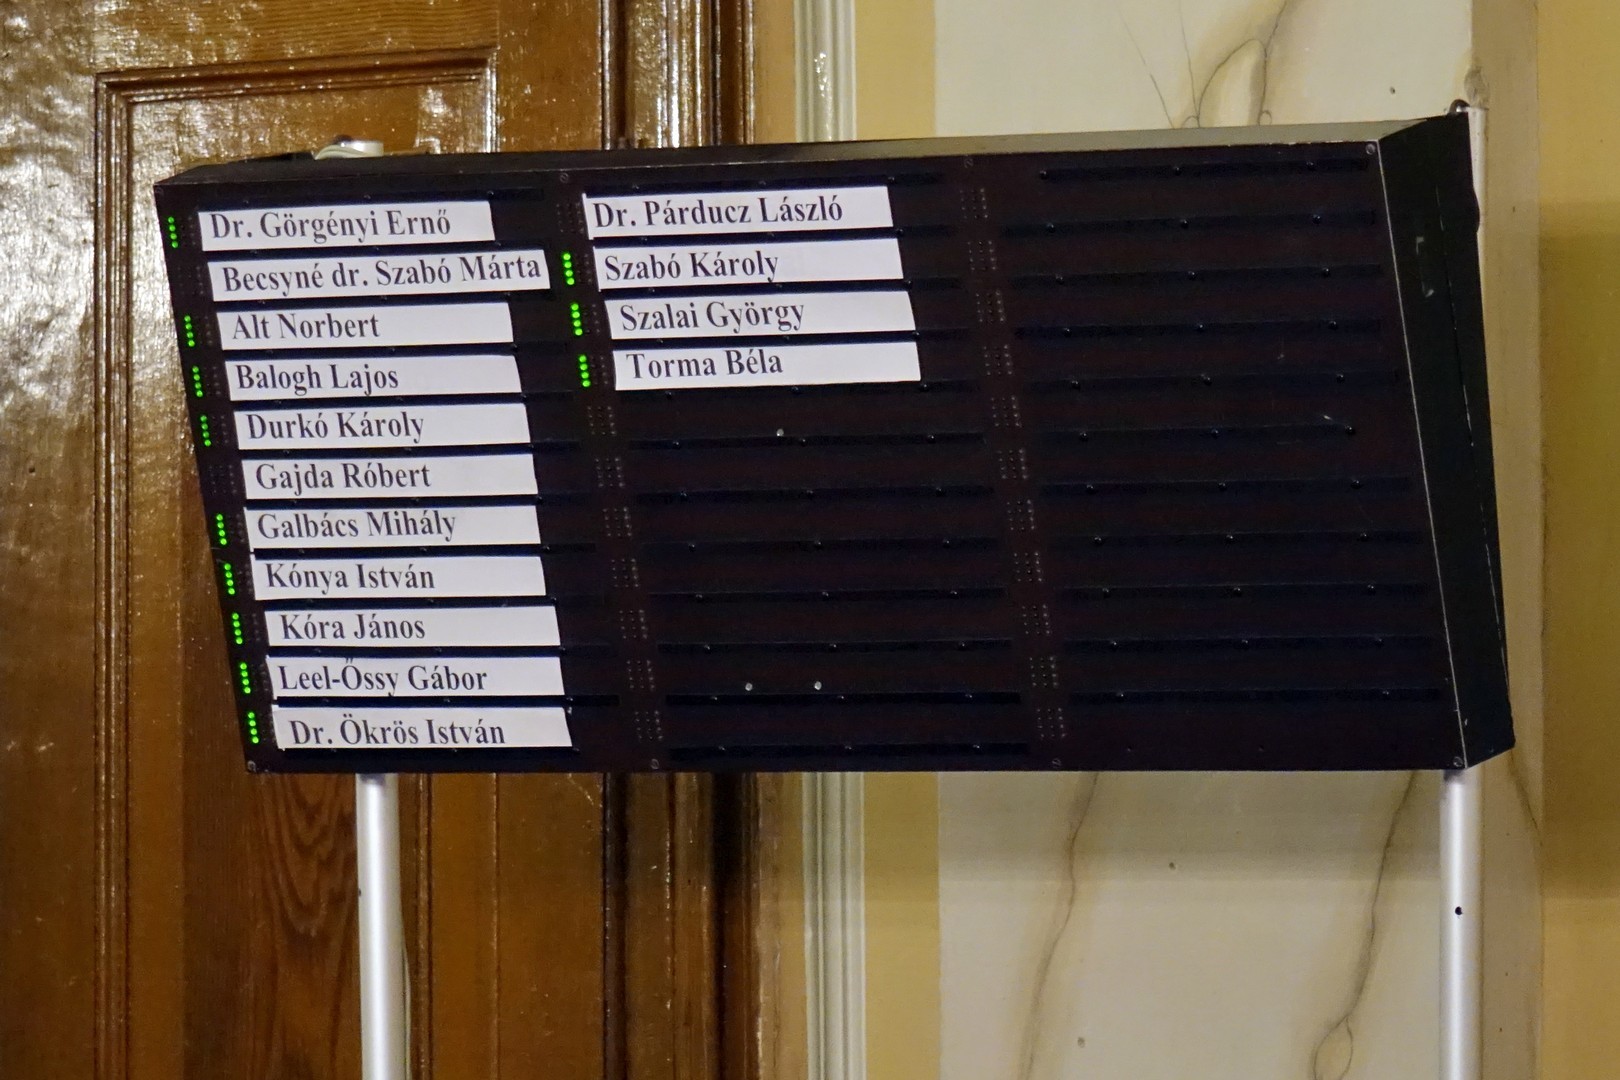 Dr. Görgényi Ernő
Becsyné dr. Szabó Márta
Alt Norbert
Balogh Lajos
Durkó Károly
Gajda Róbert
Galbács Mihály
Kónya István
Kóra János
Leel-Őssy Gábor
Dr. Ökrös István
Dr. Párducz László
Szabó Károly
Szalai György
Torma Béla